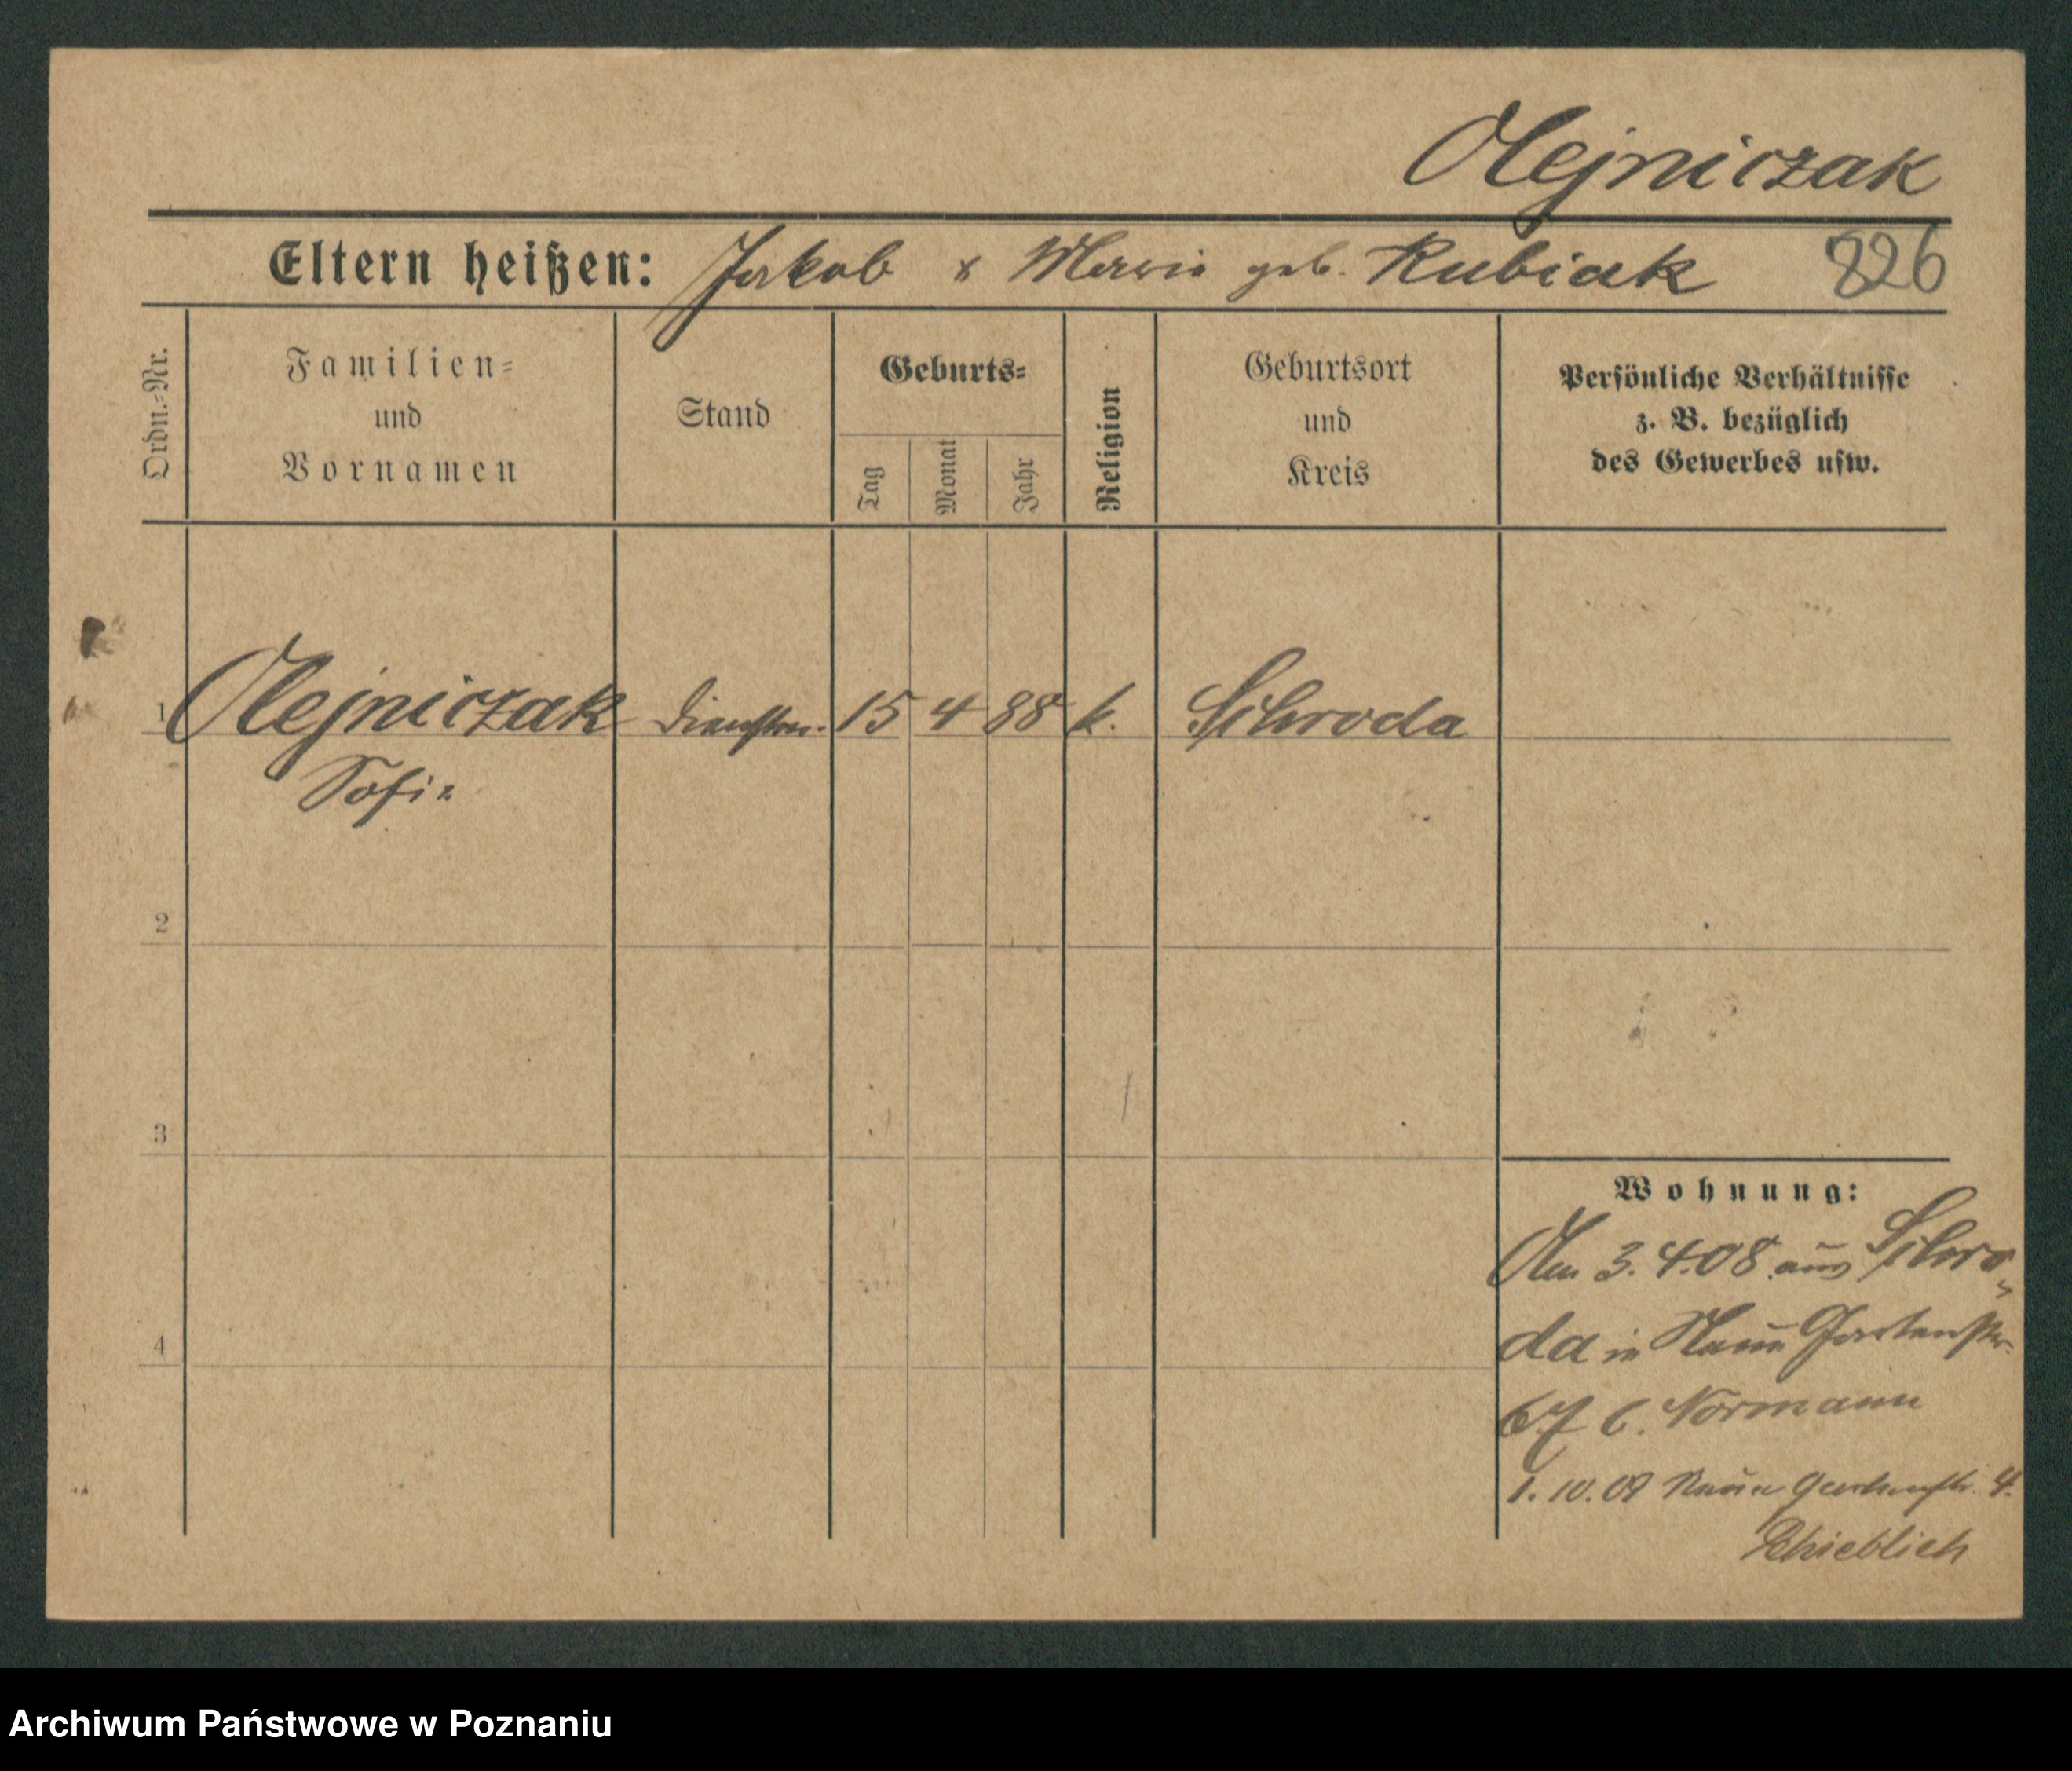 Olejniczak
Eltern heißen: Jakob & Maria geb. Rubiak 826
Ordn.-Nr.
Familien-
und
Vornamen
Stand
Geburts-
Tag
Monat
Jahr
Religion
Geburtsort
und
Kreis
Persönliche Verhältnisse
z. B. bezüglich
des Gewerbes usw.
1 Olejniczak 15 4 88 k. Schroda
Sofie
2
3
4
Wohnung:
3.4.08 aus Schro-
da in Neue Gartenstr.
67 b. Normann
1.10.09 Neue Gartenstr. 4.
Schieblich
Archiwum Państwowe w Poznaniu